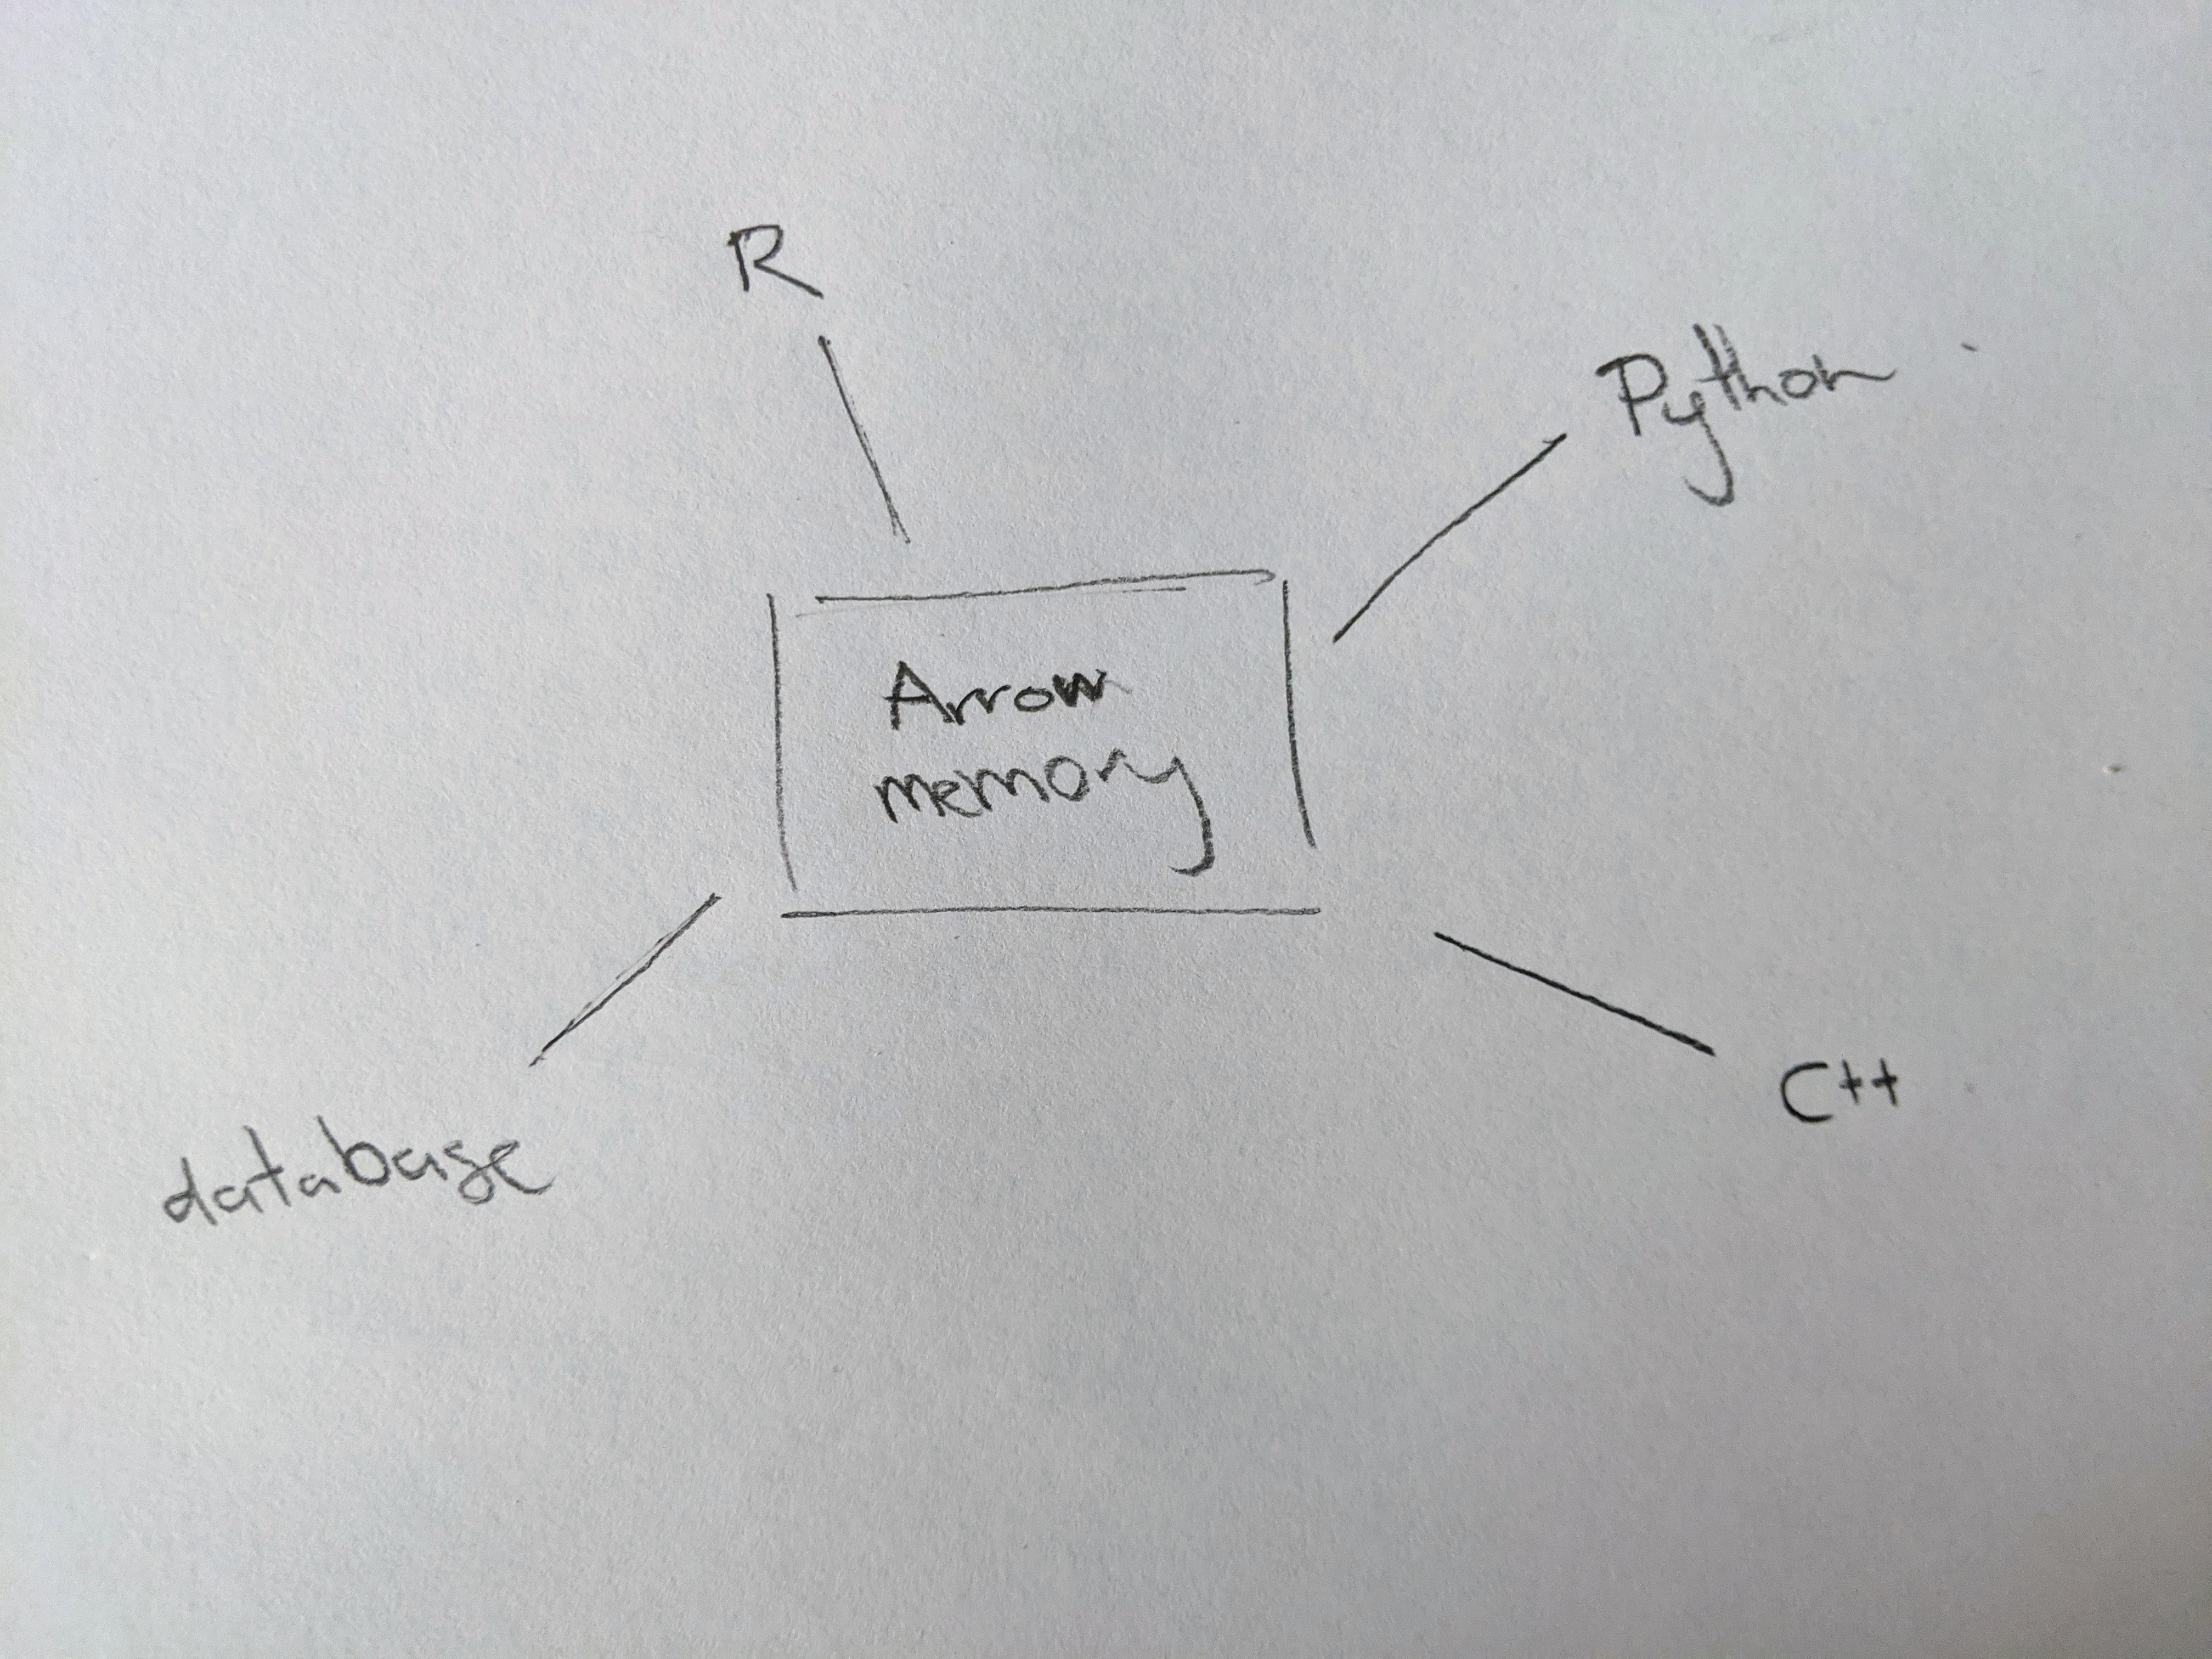 R
Python
Arrow
memory
C++
database